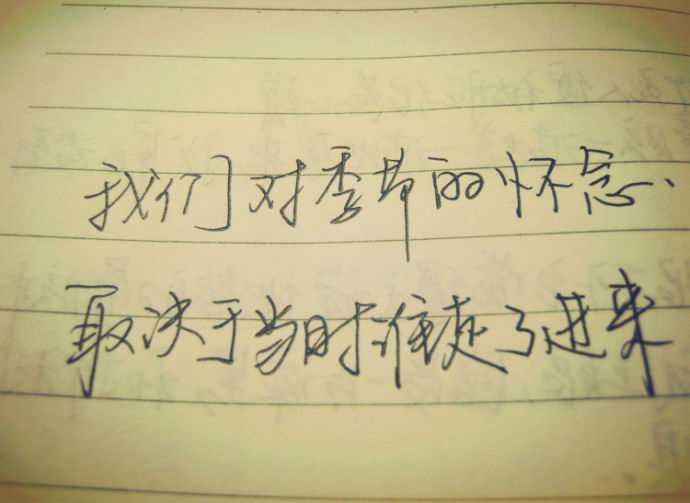 我们对季节的怀念
取决于当时谁走了进来